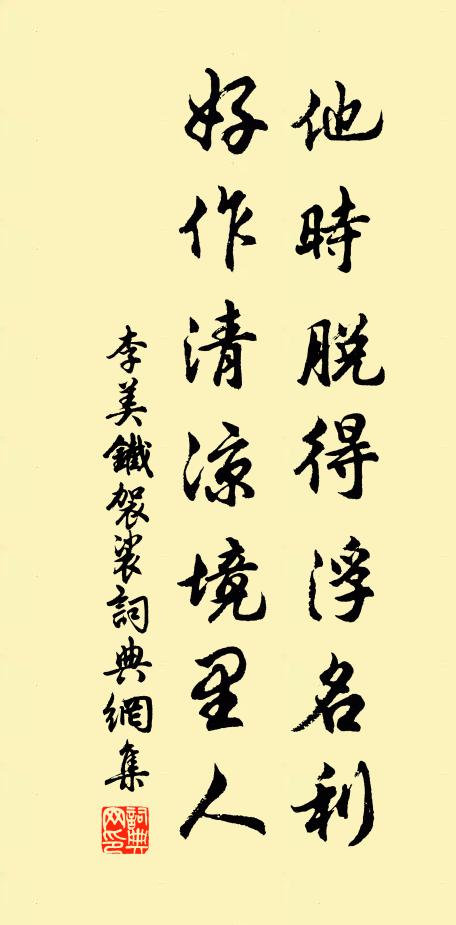 他時脫得浮名利
好作清涼境里人
李美鐵袈裟詞典網集
詞典网印